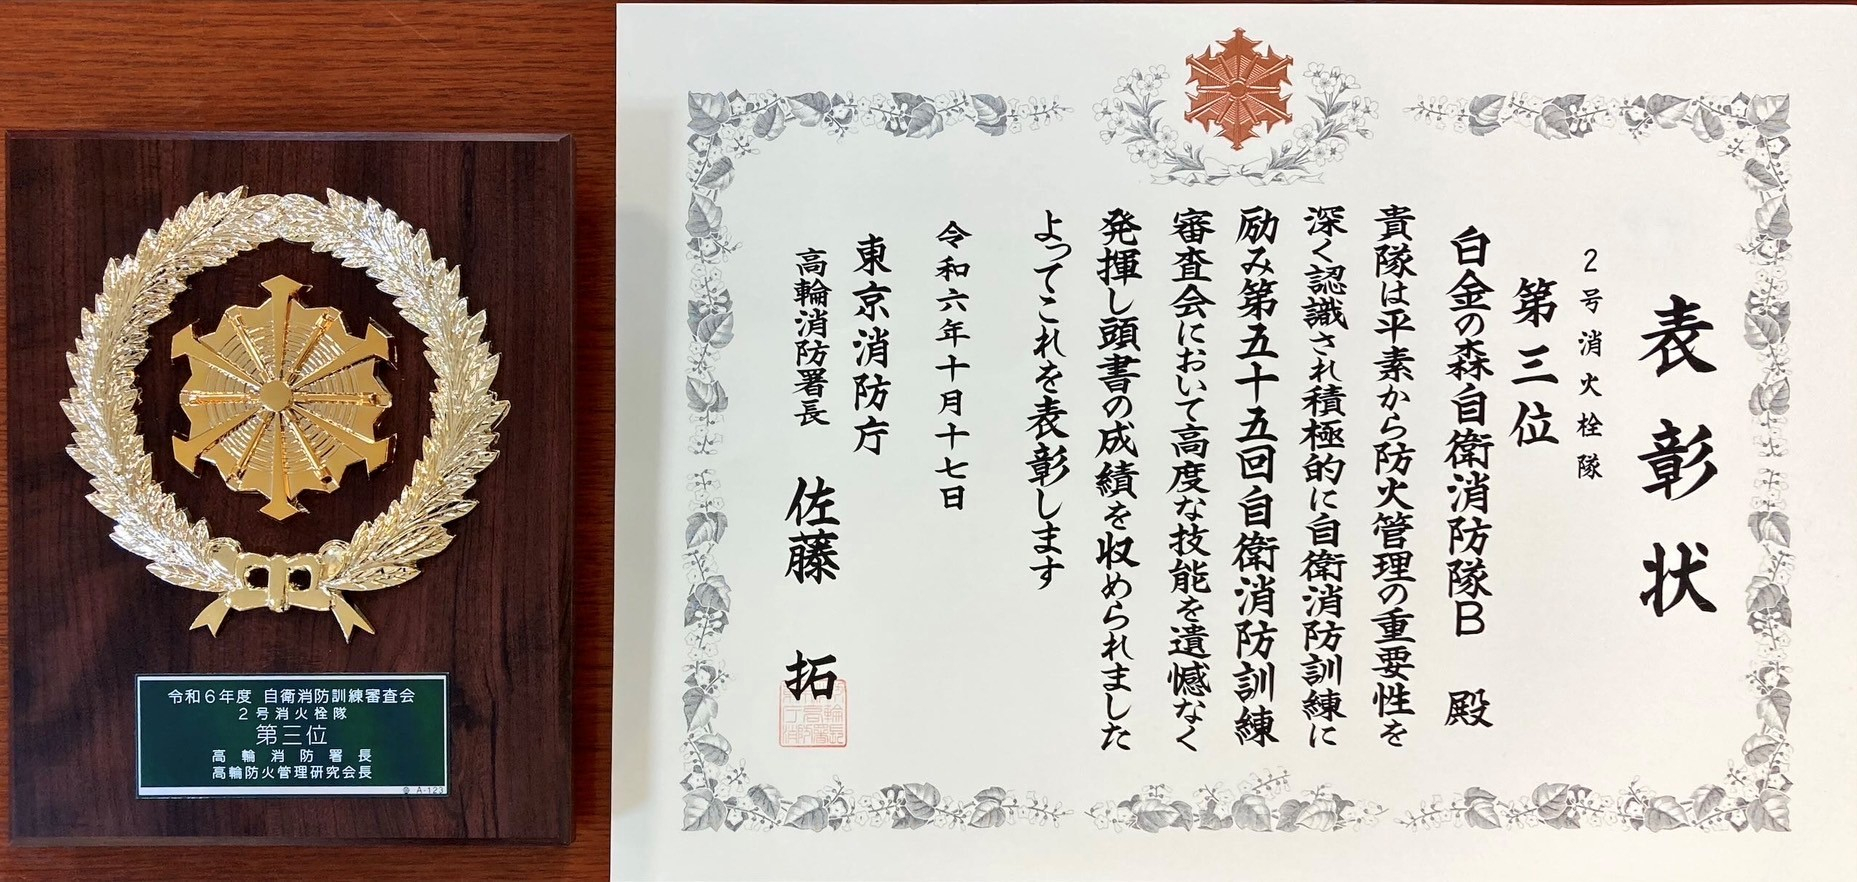 令和6年度 自衛消防訓練審査会
2号消火栓隊
第三位
高輪消防署長
高輪防火管理研究会長
A-123
表彰状
2号消火栓隊
第三位
白金の森自衛消防隊B 殿
貴隊は平素から防火管理の重要性を
深く認識され積極的に自衛消防訓練に
励み第五十五回自衛消防訓練
審査会において高度な技能を遺憾なく
発揮し頭書の成績を収められました
よってこれを表彰します
令和六年十月十七日
東京消防庁
高輪消防署長 佐藤 拓